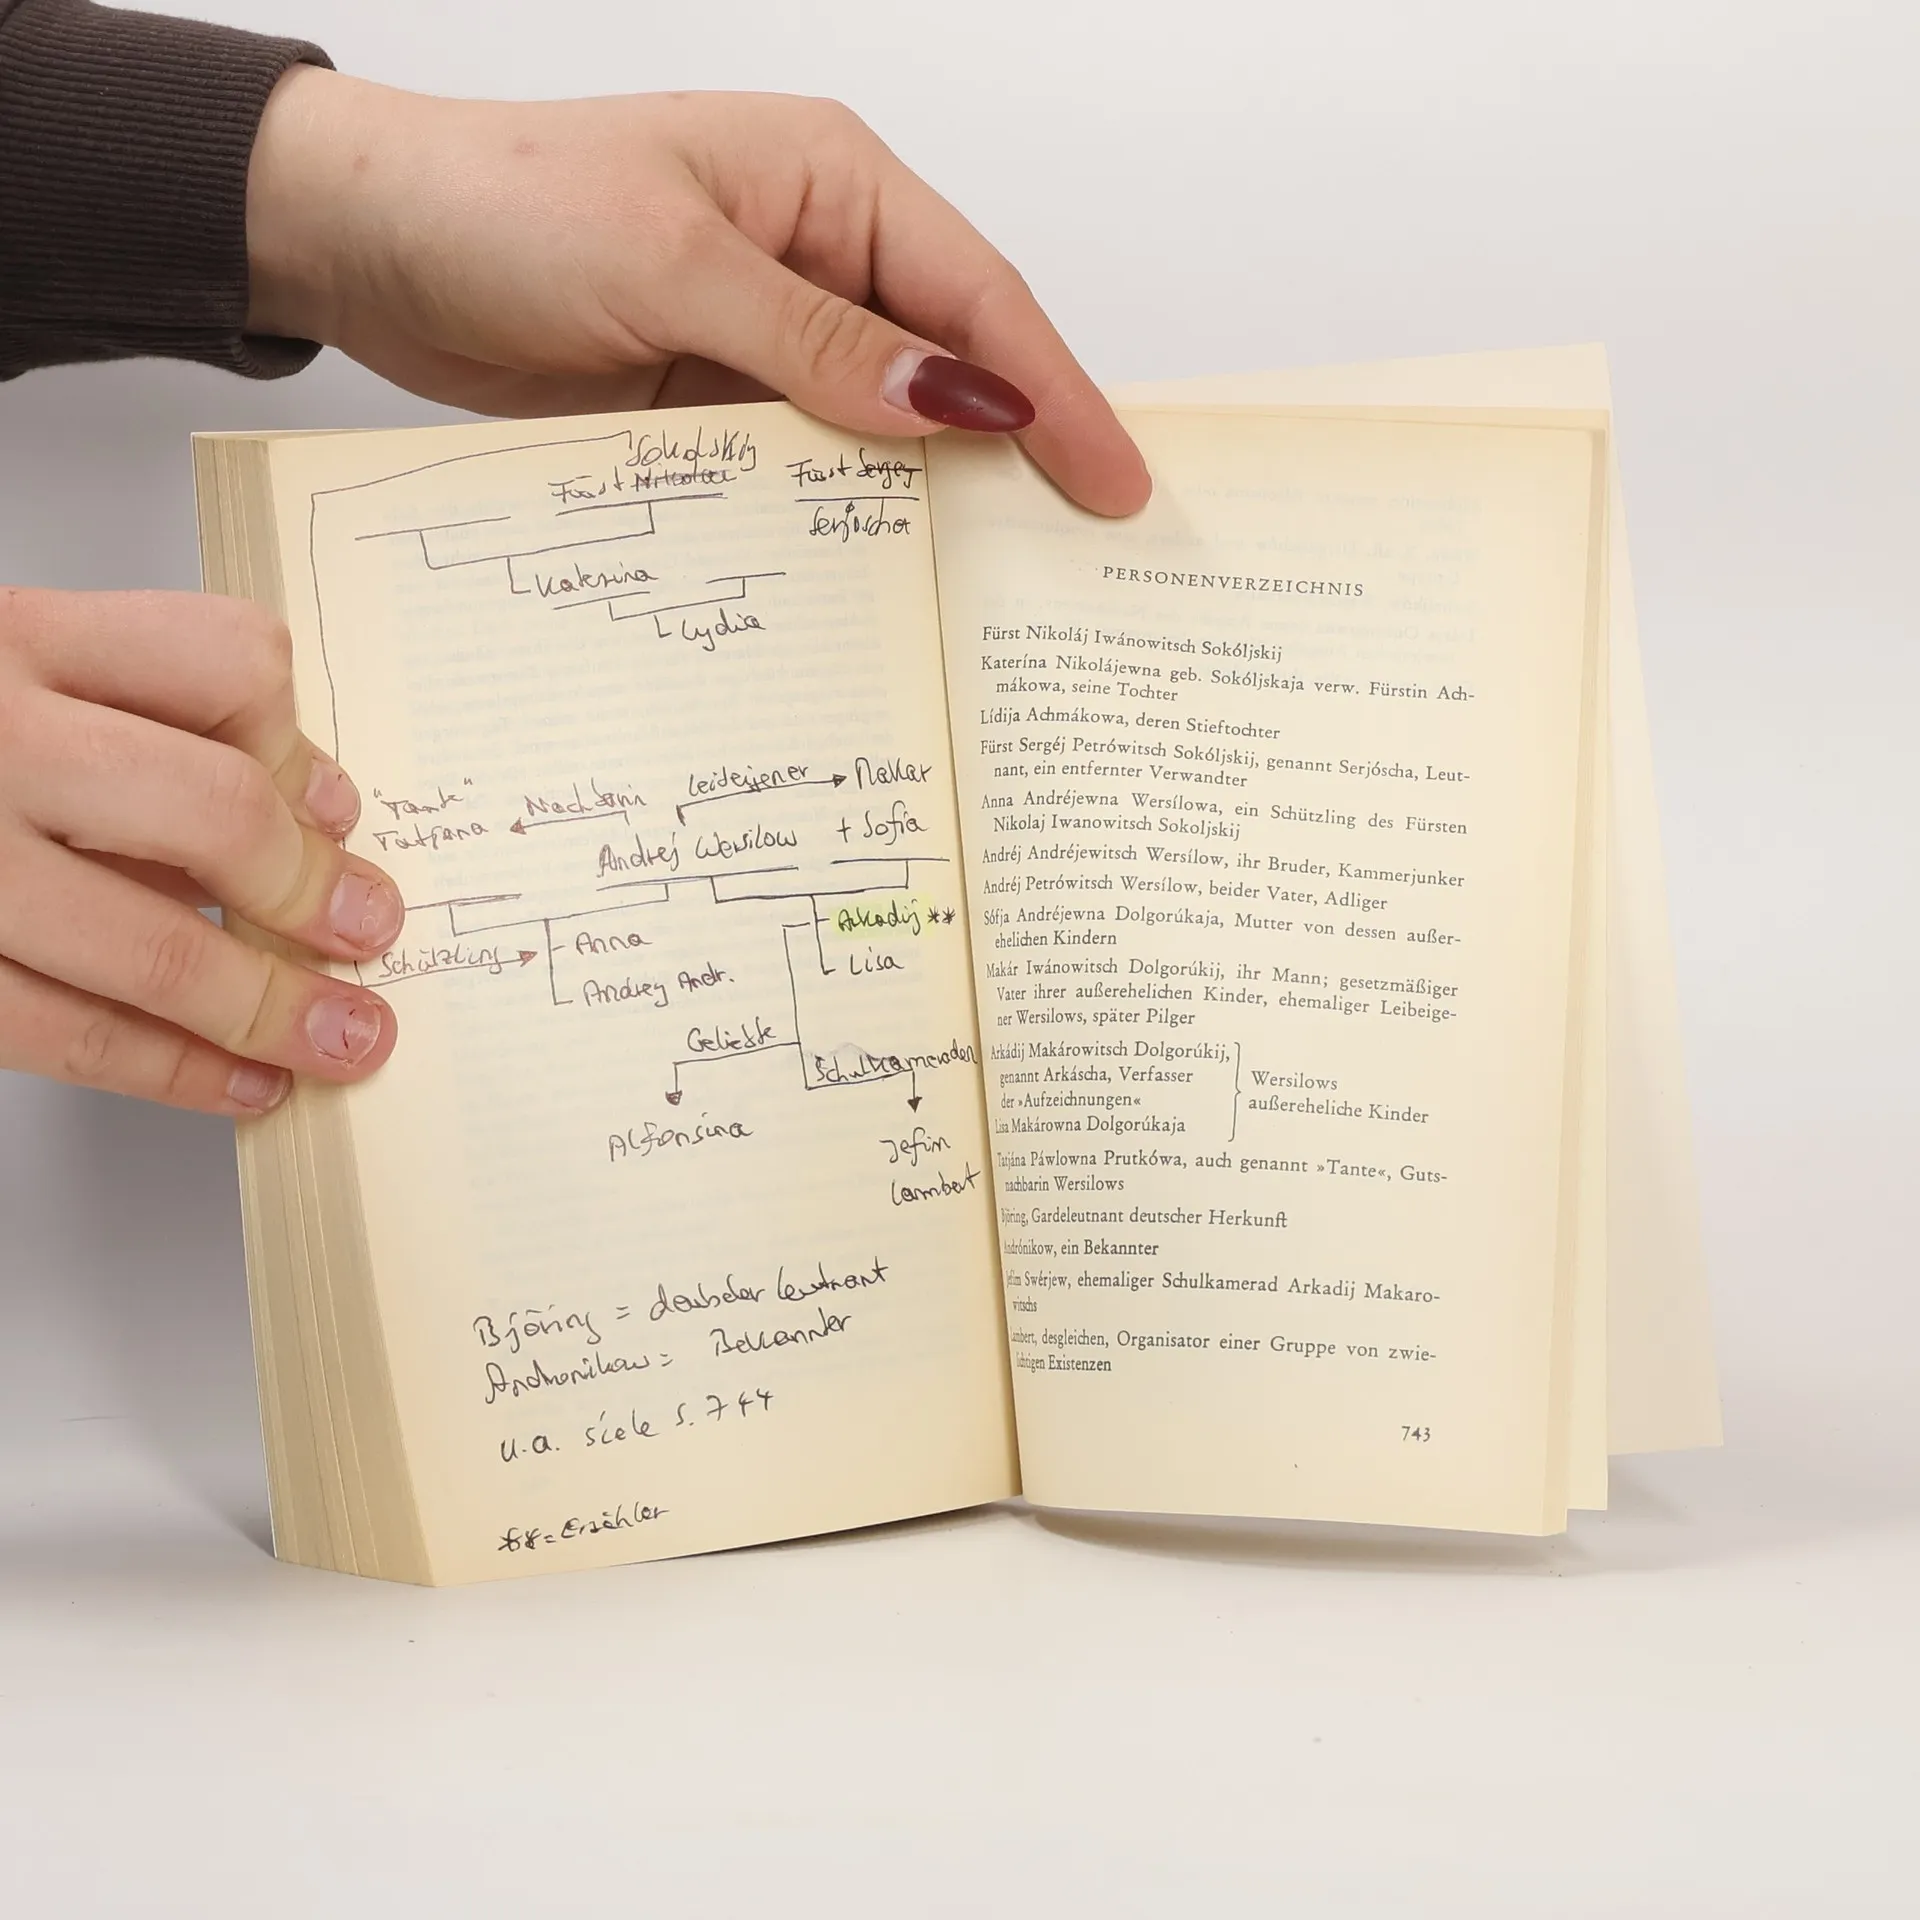 Sokolskij
Fürst Nikolai
Fürst Sergej
Serjoscha
Katerina
Lydia
Leibeigener
Makar
"Tante"
Nachbarin
Tatjana
Andrej Wersilow + Sofia
Arkadij **
Schützling
Anna
Lisa
Andrej Andr.
Geliebte
Schulkameraden
Alfonsina
Jefim
Lambert
Björing = deutscher Leutnant
Andronikow = Bekannter
u.a. siehe S. 744
** = Erzähler
PERSONENVERZEICHNIS
Fürst Nikoláj Iwánowitsch Sokóljskij
Katerína Nikolájewna geb. Sokóljskaja verw. Fürstin Ach-
mákowa, seine Tochter
Lídija Achmákowa, deren Stieftochter
Fürst Sergéj Petrówitsch Sokóljskij, genannt Serjóscha, Leut-
nant, ein entfernter Verwandter
Anna Andréjewna Wersílowa, ein Schützling des Fürsten
Nikolaj Iwanowitsch Sokoljskij
Andréj Andréjewitsch Wersílow, ihr Bruder, Kammerjunker
Andréj Petrówitsch Wersílow, beider Vater, Adliger
Sófja Andréjewna Dolgorúkaja, Mutter von dessen außer-
ehelichen Kindern
Makár Iwánowitsch Dolgorúkij, ihr Mann; gesetzmäßiger
Vater ihrer außerehelichen Kinder, ehemaliger Leibeige-
ner Wersilows, später Pilger
Arkádij Makárowitsch Dolgorúkij,
genannt Arkáscha, Verfasser
der »Aufzeichnungen«
Lisa Makárowna Dolgorúkaja
Wersilows
außereheliche Kinder
Tatjána Páwlowna Prutkówa, auch genannt »Tante«, Guts-
nachbarin Wersilows
Björing, Gardeleutnant deutscher Herkunft
Andrónikow, ein Bekannter
Jefim Swérjew, ehemaliger Schulkamerad Arkadij Makaro-
witschs
Lambert, desgleichen, Organisator einer Gruppe von zwie-
lichtigen Existenzen
743